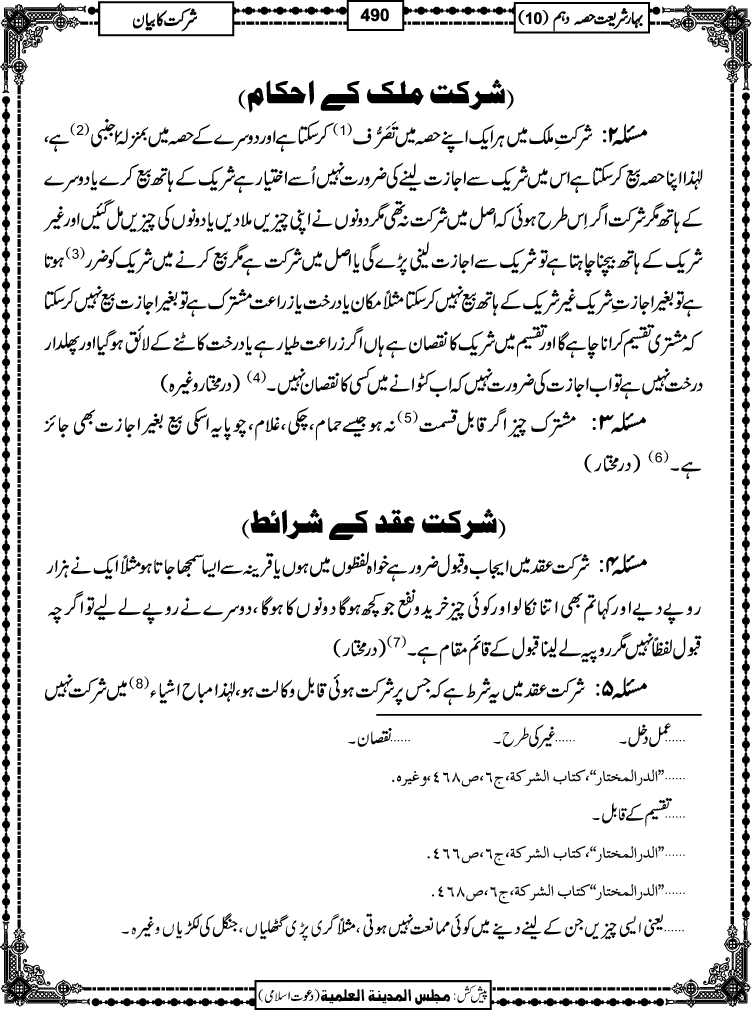 بہارِ شریعت حصہ دہم (10)
490
شرکت کا بیان
(شرکت ملک کے احکام)
مسئلہ ۲: شرکتِ ملک میں ہر ایک اپنے حصہ میں تَصَرُّف (1) کر سکتا ہے اور دوسرے کے حصہ میں بمنزلۂ اجنبی (2) ہے،
لہٰذا اپنا حصہ بیع کر سکتا ہے اس میں شریک سے اجازت لینے کی ضرورت نہیں اُسے اختیار ہے شریک کے ہاتھ بیع کرے یا دوسرے
کے ہاتھ مگر شرکت اگر اِس طرح ہوئی کہ اصل میں شرکت نہ تھی مگر دونوں نے اپنی چیزیں ملا دیں یا دونوں کی چیزیں مل گئیں اور غیر
شریک کے ہاتھ بیچنا چاہتا ہے تو شریک سے اجازت لینی پڑے گی یا اصل میں شرکت ہے مگر بیع کرنے میں شریک کو ضرر (3) ہوتا
ہے تو بغیر اجازتِ شریک غیر شریک کے ہاتھ بیع نہیں کر سکتا مثلاً مکان یا درخت یا زراعت مشترک ہے تو بغیر اجازت بیع نہیں کر سکتا
کہ مشتری تقسیم کرانا چاہے گا اور تقسیم میں شریک کا نقصان ہے ہاں اگر زراعت طیار ہے یا درخت کاٹنے کے لائق ہو گیا اور پھلدار
درخت نہیں ہے تو اب اجازت کی ضرورت نہیں کہ اب کٹوانے میں کسی کا نقصان نہیں۔ (4) (درمختار وغیرہ)
مسئلہ ۳: مشترک چیز اگر قابل قسمت (5) نہ ہو جیسے حمام، چکی، غلام، چوپایہ اسکی بیع بغیر اجازت بھی جائز
ہے۔ (6) (درمختار)
(شرکت عقد کے شرائط)
مسئلہ ۴: شرکت عقد میں ایجاب و قبول ضرور ہے خواہ لفظوں میں ہوں یا قرینہ سے ایسا سمجھا جاتا ہو مثلاً ایک نے ہزار
روپے دیے اور کہا تم بھی اتنا نکالو اور کوئی چیز خریدو نفع جو کچھ ہوگا دونوں کا ہوگا، دوسرے نے روپے لے لیے تو اگرچہ
قبول لفظاً نہیں مگر روپیہ لے لینا قبول کے قائم مقام ہے۔ (7) (درمختار)
مسئلہ ۵: شرکت عقد میں یہ شرط ہے کہ جس پر شرکت ہوئی قابل وکالت ہو، لہٰذا مباح اشیاء (8) میں شرکت نہیں
......عمل دخل۔ ......غیر کی طرح۔ ......نقصان۔
......”الدرالمختار“،کتاب الشرکة،ج٦،ص٤٦٨،وغیرہ.
......تقسیم کے قابل۔
......”الدرالمختار“،کتاب الشرکة،ج٦،ص٤٦٦.
......”الدرالمختار“کتاب الشرکة،ج٦،ص٤٦٨.
......یعنی ایسی چیزیں جن کے لینے دینے میں کوئی ممانعت نہیں ہوتی، مثلاً گری پڑی گٹھلیاں، جنگل کی لکڑیاں وغیرہ۔
پیش کش: مجلس المدینة العلمیة (دعوت اسلامی)